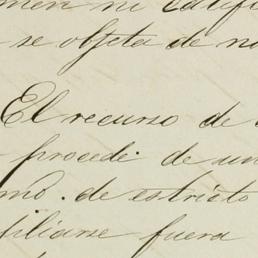 men ni califi
se objeta de no
El recurso de
procede de un
mo. de estricto
filiarse fuera